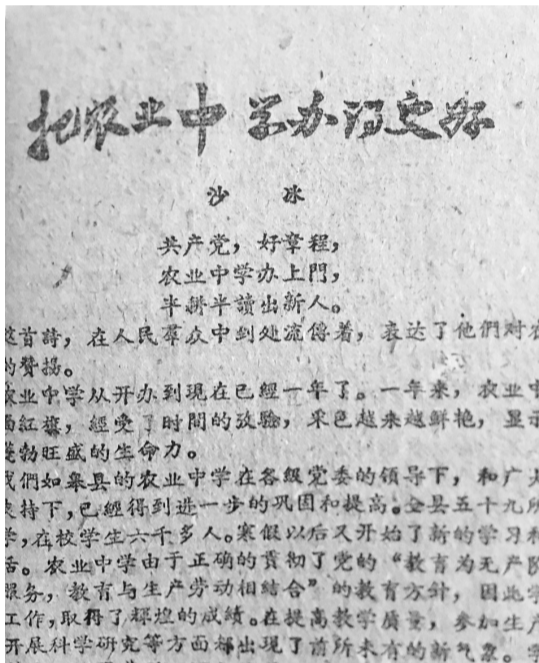 把农业中学办得更好
沙冰
共产党，好章程，
农业中学办上門，
半耕半讀出新人。
这首詩，在人民羣众中到处流傳着，表达了他們对农
的贊揚。
农业中学从开办到現在已經一年了。一年来，农业中
面紅旗，經受了时間的攷驗，采色越来越鮮艳，显示
蓬勃旺盛的生命力。
我們如皋县的农业中学在各級党委的領导下，和广大
支持下，已經得到进一步的巩固和提高。全县五十九所
学，在校学生六千多人。寒假以后又开始了新的学习和
活。农业中学由于正确的貫彻了党的“教育为无产阶
服务，教育与生产劳动相結合”的教育方針，因此学
工作，取得了輝煌的成績。在提高教学质量，参加生产
开展科学研究等方面都出現了前所未有的新气象。